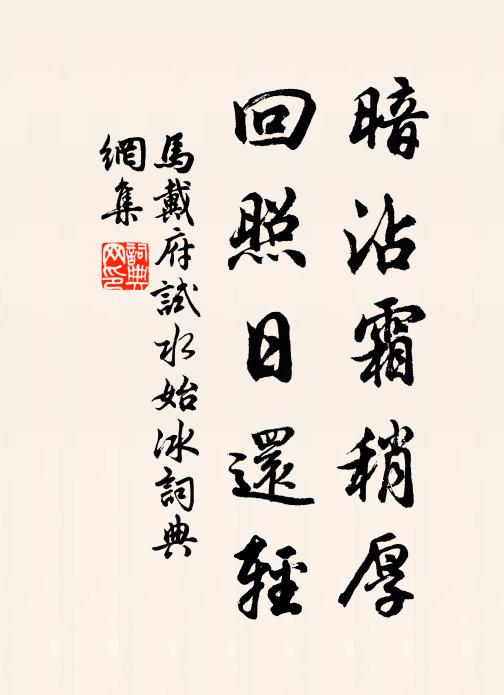 暗沾霜稍厚
回照日還輕
馬戴府試水始冰詞典
網集
詞典网印